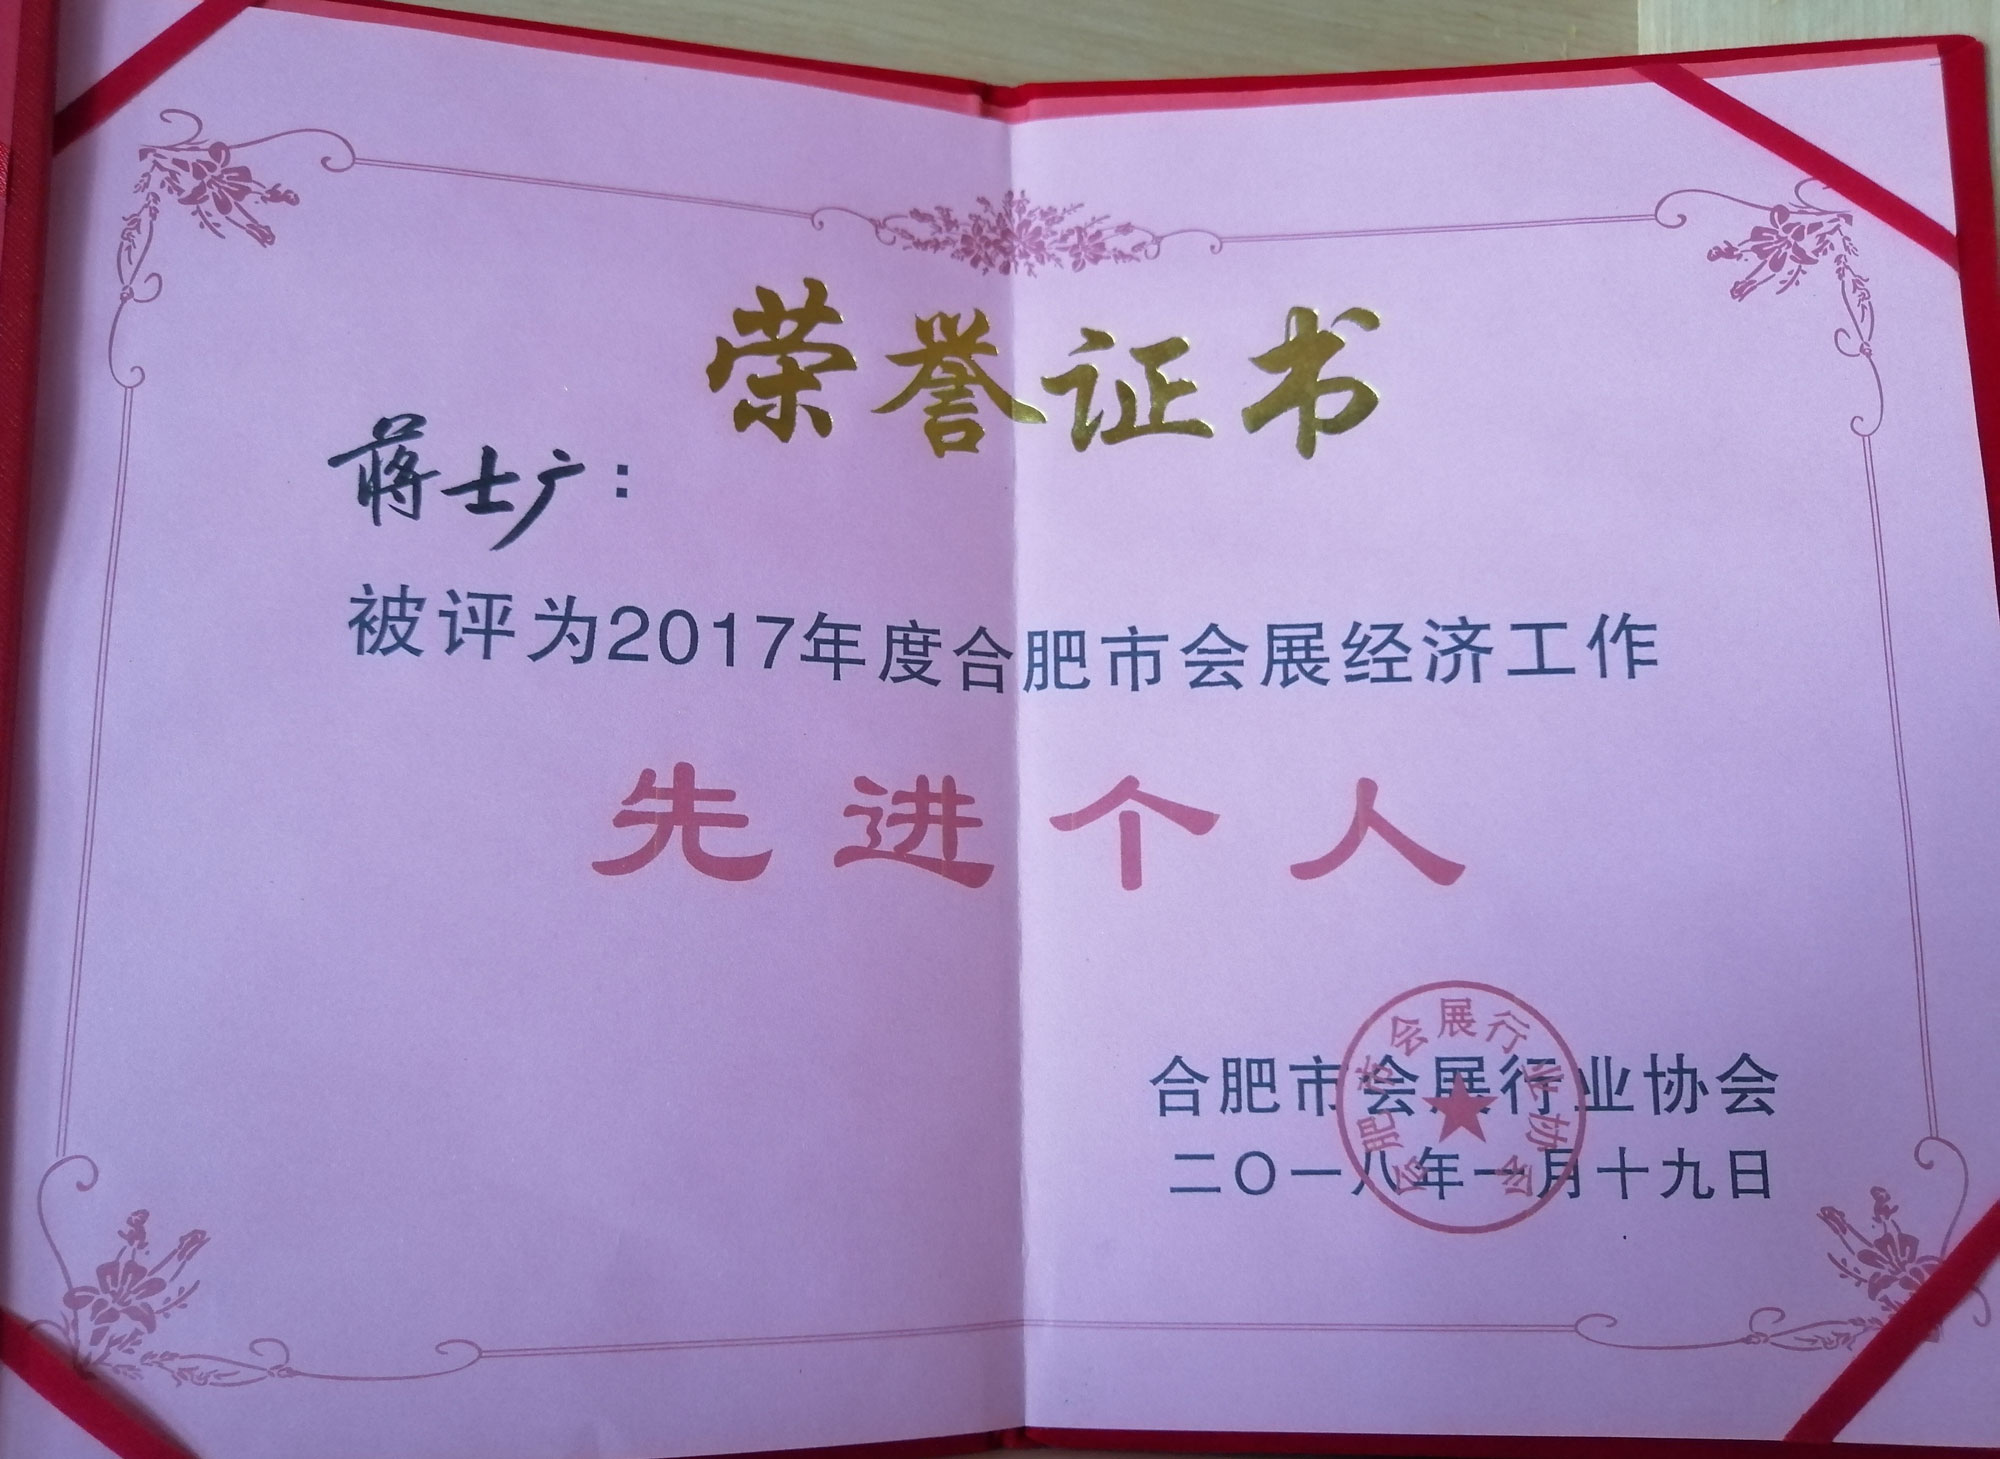 荣誉证书
蒋士广：
被评为2017年度合肥市会展经济工作
先进个人
合肥市会展行业协会
二〇一八年一月十九日
合肥市会展行业协会